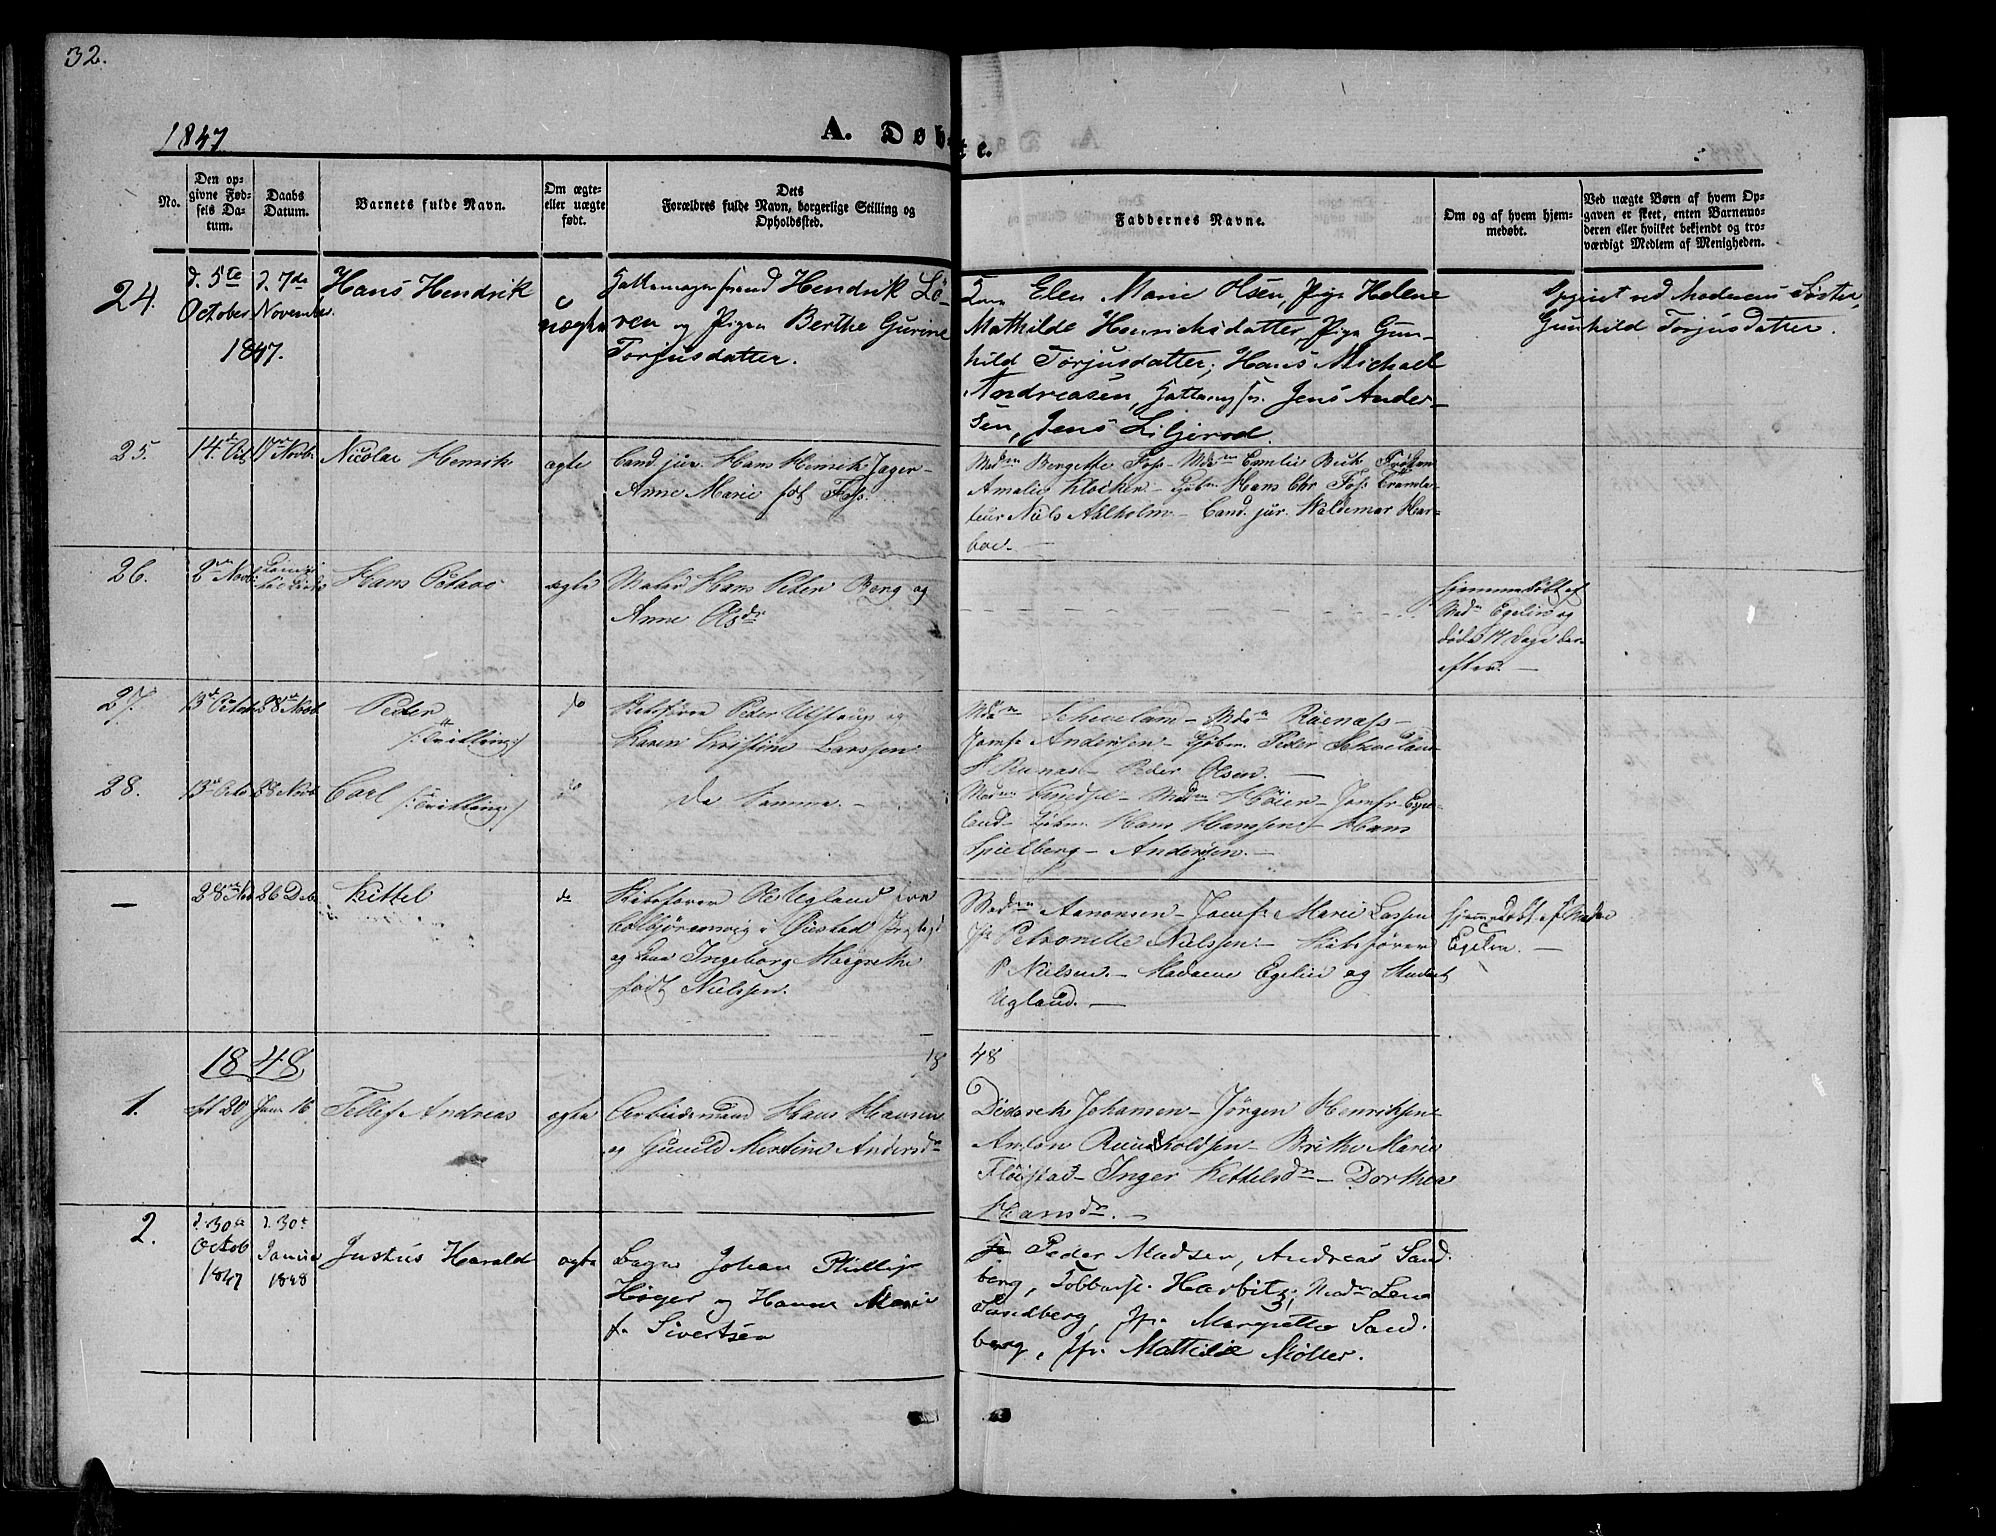 32.
1847
A. Døbte.
No.
Den op-
givne Fød-
sels Da-
tum.
Daabs
Datum.
Barnets fulde Navn.
Om ægte-
eller uægte
født.
Dets
Forældres fulde Navn, borgerlige Stilling og
Opholdssted.
Faddernes Navne.
Om og af hvem hjem-
medøbt.
Ved uægte Børn af hvem Op-
gaven er skeet, enten Barnemo-
deren eller hvilket bekjendt og tro-
værdigt Medlem af Menigheden.
24.
d. 5te
October
1847.
d. 7de
November
Hans Hendrik
uægte
Hendrik Lö-
ren og Pigen Berthe Gurine
Torjusdatter.
Elen Marie Olsen, Pige Helene
Mathilde Henrichsdatter, Pige Gun-
hild Torjusdatter, Hans Michael
Andreasen, Jens Ander-
sen, Jens Liljerod.
Opgivet ved Moderens Søster,
Gunhild Torjusdatter.
25.
14de Oct
17 Novb.
Nicolai Henrik
ægte
Cand. jur. Hans Henrik Jager-
Anne Marie født Foss.
Madm Bergette Foss - Mdm Emilie Beck
Amalie Klocker - Hans Chr Foss
Niels Ahlholm - Cand. jur. Waldemar Har-
boe -
26.
2 Novb.
Hans Petter
ægte
Hans Peter Berg og
Anne Olsdr
hjemmedøbt af
Madn Egelie og
døde 14 Dage der-
efter. -
27.
13de Octob
28de Novb.
Peder
(: Tvilling :)
do
Skibsfører Peder Ulstrup og
Karen Kristine Larssen
Mdm Scheveland - Mdm Raenæss -
Jomf. Andersen - Peder
Peder Olsen. -
28.
13de Octo
28 Novb
Carl (: Tvilling :)
do
de Samme. -
Madm Knudsen - Madm Höier - Jomfr. Ege-
land - Hans Hanssen - Hans
Spielberg - Andersen. -
-
28 Nov
26 Deb
Kittel
do
Skibsfører Ole Ugland fra
Colbjörnsvig i Øiestad
og Ingeborg Margrethe
født Nielssen.
Madm Aanonsen - Jomfr. Marie Lassen
Jfr Petronelle Nielssen. - Skibsfører
P Nielsen. - Madame Egelie og
Ugland. -
hjemmedøbt af Madm
Egelie. -
1848
1848
1.
Spt 20
Janr 16
Tellef Andreas
ægte
Arbeidsmand Hans Hansen
og Gunild Kirstine Andersdr
Diderik Johansen - Jörgen Henriksen -
Anton - Brithe Marie
Flöistad - Inger Kittelsdr - Dorthea
Hansdr. -
2.
d. 30te
Octob
1847
d. 30te
Januar
1848
Justus Harald
ægte
Johan Phillip
Höger og Hanne Marie
f. Sivertsen
Peder Madsen, Andreas Sand-
berg, Harbitz, Madm Lene
Sandberg, Jfr. Margrethe Sand-
berg, Jfr. Mathilde Møller.